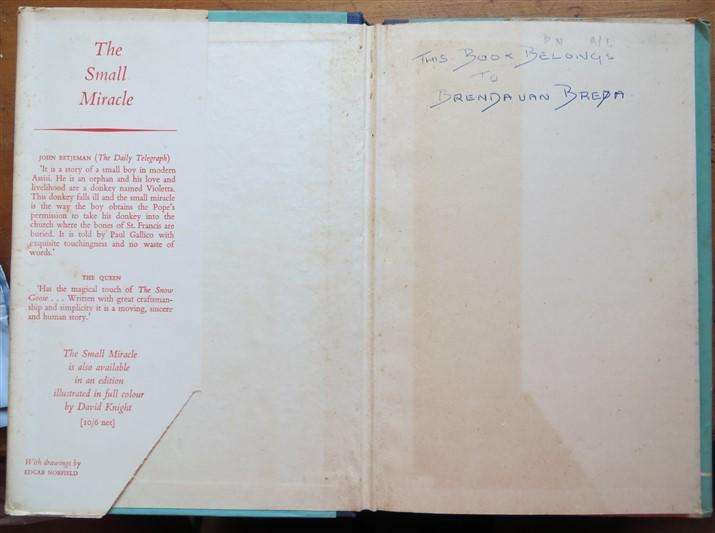 The
Small
Miracle
JOHN BETJEMAN (The Daily Telegraph)
'It is a story of a small boy in modern
Assisi. He is an orphan and his love and
livelihood are a donkey named Violetta.
This donkey falls ill and the small miracle
is the way the boy obtains the Pope's
permission to take his donkey into the
church where the bones of St. Francis are
buried. It is told by Paul Gallico with
exquisite touchingness and no waste of
words.'
THE QUEEN
'Has the magical touch of The Snow
Goose . . . Written with great craftsman-
ship and simplicity it is a moving, sincere
and human story.'
The Small Miracle
is also available
in an edition
illustrated in full colour
by David Knight
[10/6 net]
With drawings by
EDGAR NORFIELD
THIS BOOK BELONGS
TO
BRENDA VAN BREDA